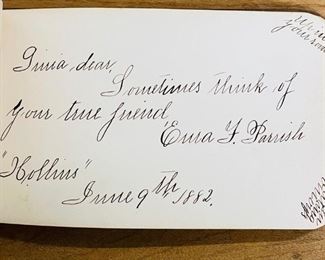 Ginia, dear,
Sometimes think of
your true friend,
Eura F. Parrish
"Hollins"
June 9th, 1882.